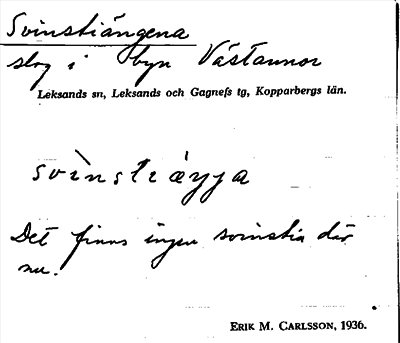 Svinstiängena
slog i byn Västannor
Leksands sn, Leksands och Gagnefs tg, Kopparbergs län.
svìnstiæŋŋa
Det finns ingen svinstia där
nu.
ERIK M. CARLSSON, 1936.